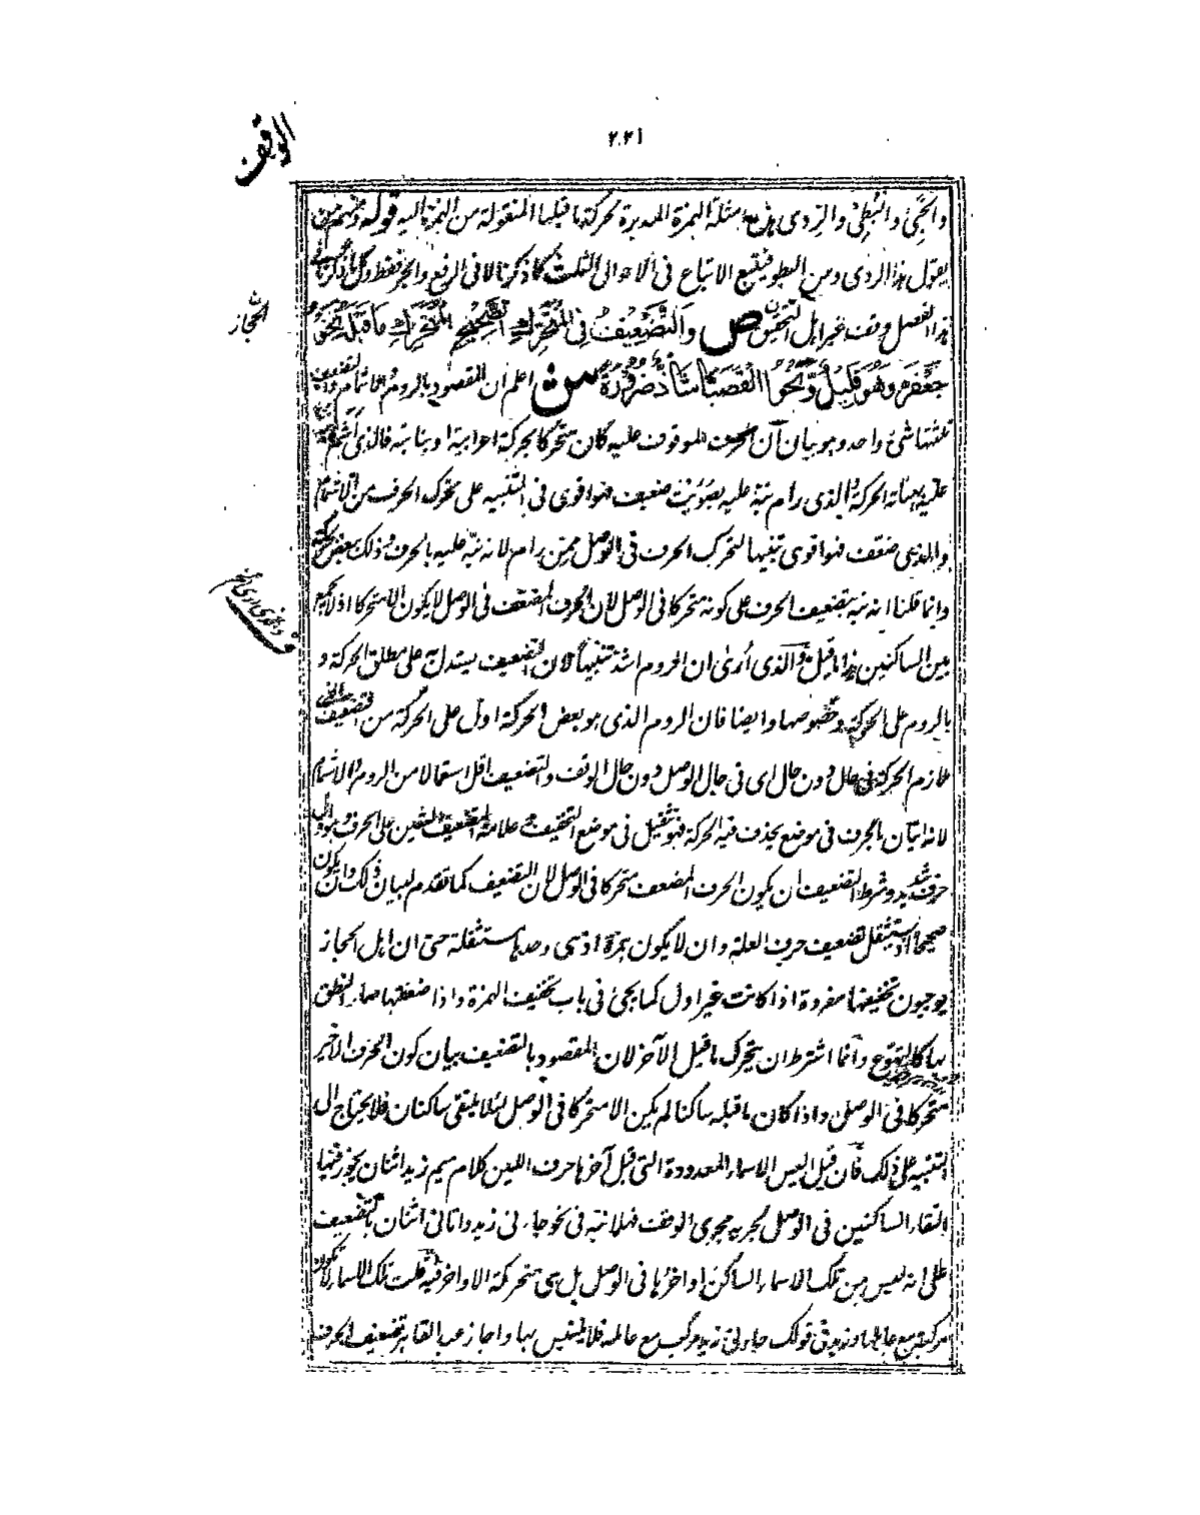 الوقف
٢٢١
والخبئ والبطئ والردى هذه امثلة الهمزة المدبرة بحركة ما قبلها المنقولة من الهمزة اليه قوله ومنهم من
يقول هذا الردى ومن البطو فيتبع الاتباع فى الاحوال الثلث كما ذكرنا لا فى الرفع والجر فقط وكل ما ذكرنا فى
هذا الفصل وقف غير اهل التحقيق ص وَالتَّضْعِيفُ فِى الْمُتَحَرِّكِ الصَّحِيْحِ الْمُتَحَرِّكِ مَا قَبْلَهُ نَحْوُ
الحجاز
جَعْفَرّ وَهُوَ قَلِيْلٌ وَنَحْوُ الْقَصَبَّا شَاذٌّ ضَرُوْرَةً ش اعلم ان المقصود بالروم والاشمام والتضعيف
ثلثتها شئ واحد وهو بيان ان الحرف الموقوف عليه كان متحركا بحركة اعرابية او بنائية فالذى اشم نبه
عليه بهيأة الحركة والذى رام نبه عليه بصويت ضعيف فهو اقوى فى التنبيه على تحرك الحرف من الاشمام
والذى ضعف فهو اقوى تنبيها لتحرك الحرف فى الوصل ممن رام لانه نبه عليه بالحرف وذلك ببعض الحركة
وانما قلنا انه نبه بتضعيف الحرف على كونه متحركا فى الوصل لان الحرف المضعف فى الوصل لا يكون الا متحركا اذ لا يجمع
بين الساكنين هذا ما قيل والذى أرىٰ ان الروم اشد تنبيها لان التضعيف يستدل به على مطلق الحركة و
بالروم على الحركة وخصوصها وايضا فان الروم الذى هو بعض الحركة ادل على الحركة من التضعيف الذى
يلازم الحركة فى حال دون حال اى فى حال الوصل دون حال الوقف والتضعيف اقل استعمالا من الروم والاشمام
لانه اتيان بالحرف فى موضع يحذف فيه الحركة فهو تثقيل فى موضع التخفيف وعلامة التضعيف الشين على الحرف وهو اول
حرف شديد وشرط التضعيف ان يكون الحرف المضعف متحركا فى الوصل لان التضعيف كما تقدم لبيان ذلك وان يكون
صحيحا اذ يستثقل تضعيف حرف العلة وان لا يكون همزة اذ هى وحدها مستثقلة حتى ان اهل الحجاز
يوجبون تخفيفها مفردة اذا كانت غير اول كما يجئ فى باب تخفيف الهمزة واذا ضعفتها صار النطق
بها كالتهوع وانما اشترط ان يتحرك ما قبل الآخر لان المقصود بالتضعيف بيان كون الحرف الاخير
متحركا فى الوصل واذا كان ما قبله ساكنا لم يكن الا متحركا فى الوصل لئلا يلتقى ساكنان فلا يحتاج الى
التنبيه على ذلك فان قيل اليس الاسماء المعدودة التى قبل آخرها حرف اللين كلام ميم زيد اثنان يجوز فيها
التقاء الساكنين فى الوصل لجريه مجرى الوقف فهلا نبه فى نحو جاءنى زيد واتانى اثنان بالتضعيف
على انه ليس من تلك الاسماء الساكن اواخرها فى الوصل بل هى متحركة الاواخر فيه قلت تلك الاسماء لا تكون
مركبة مع عاملها وزيد فى قولك جاءنى زيد مركب مع عامله فلا يلتبس بها واجاز عبد القاهر تضعيف الحرف